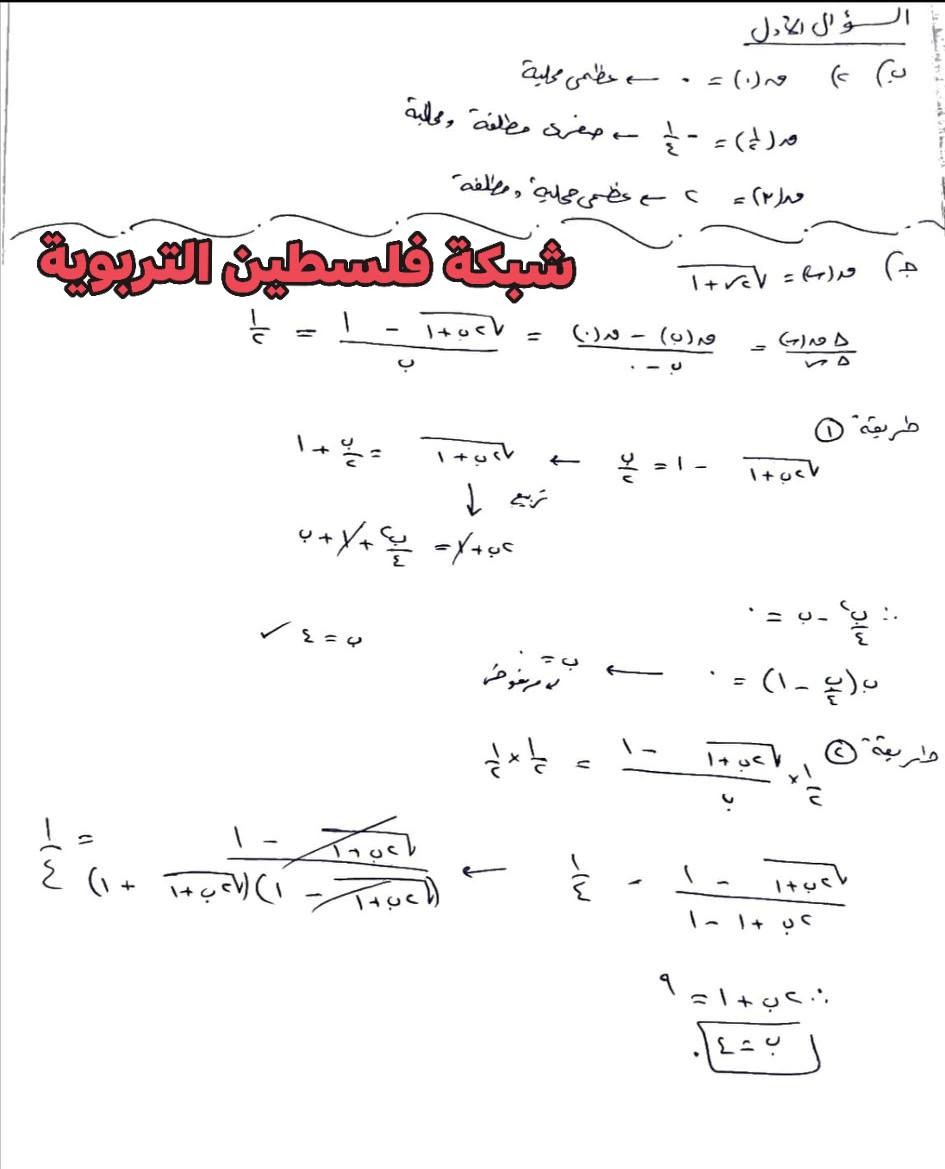 السؤال الأول
ب) ٢) ق(٠) = ٠ ← عظمى محلية
ق(١/٢) = -١/٤ ← صغرى مطلقة ومحلية
ق(٢) = ٢ ← عظمى محلية ومطلقة
شبكة فلسطين التربوية
جـ) ق(س) = √(٢س+١)
Δق(س)/Δس = (ق(ب) - ق(٠))/(ب - ٠) = (√(٢ب+١) - ١)/ب = ١/٢
طريقة ①
√(٢ب+١) - ١ = ب/٢ ← √(٢ب+١) = ب/٢ + ١
↓ تربيع
٢ب+١ = ب٢/٤ + ١ + ب
∴ ب٢/٤ - ب = ٠
ب(ب/٤ - ١) = ٠ ← ب = ٠ مرفوض
ب = ٤ ✓
طريقة ②
١/٢ × (√(٢ب+١) - ١)/ب = ١/٢ × ١/٢
(√(٢ب+١) - ١)/(٢ب + ١ - ١) = ١/٤ ← (√(٢ب+١) - ١)/((√(٢ب+١) - ١)(√(٢ب+١) + ١)) = ١/٤
∴ ٢ب + ١ = ٩
ب = ٤